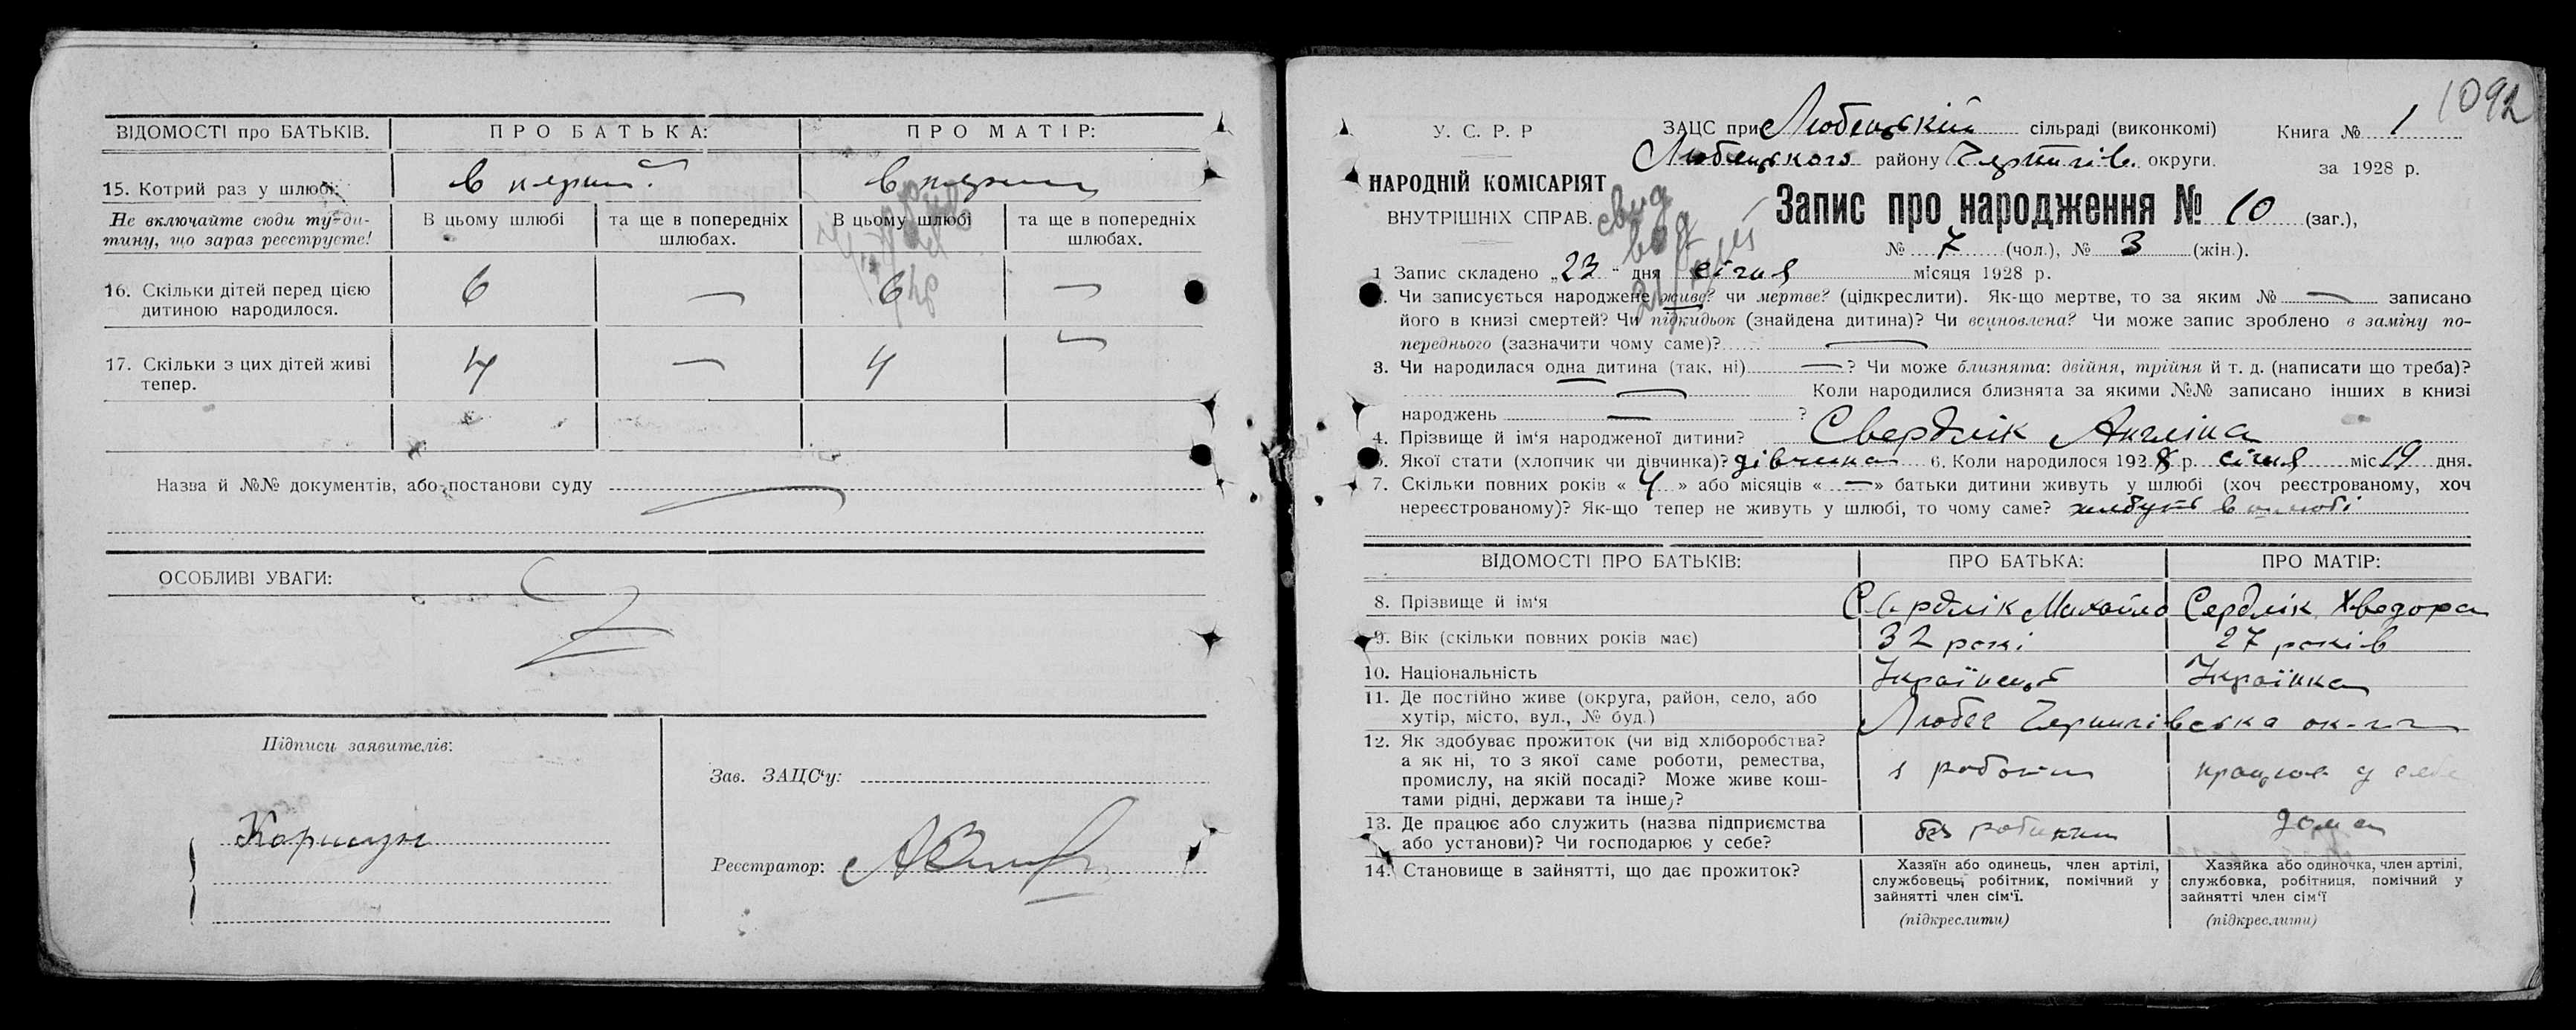 ВІДОМОСТІ про БАТЬКІВ. ПРО БАТЬКА: ПРО МАТІР:
15. Котрий раз у шлюбі: в перший в перший
Не включайте сюди ту-ди-
тину, що зараз реєструєте!
В цьому шлюбі та ще в попередніх шлюбах. В цьому шлюбі та ще в попередніх шлюбах.
16. Скільки дітей перед цією
дитиною народилося. 6 — 6 —
17. Скільки з цих дітей живі
тепер. 4 — 4 —
Назва й №№ документів, або постанови суду
ОСОБЛИВІ УВАГИ:
Підписи заявителів:
Коршун
Зав. ЗАЦС'у:
Реєстратор:
1092
У. С. Р. Р
НАРОДНІЙ КОМІСАРІЯТ
ВНУТРІШНІХ СПРАВ.
ЗАЦС при Любецькій сільраді (виконкомі)
Любецького району Чернигів. округи.
Книга № 1
за 1928 р.
Запис про народження № 10 (заг.),
№ 7 (чол.), № 3 (жін.).
1 Запис складено „23" дня січня місяця 1928 р.
Чи записується народжене живе? чи мертве? (цідкреслити). Як-що мертве, то за яким № — записано
його в книзі смертей? Чи підкидьок (знайдена дитина)? Чи всиновлена? Чи може запис зроблено в заміну по-
переднього (зазначити чому саме)? —
3. Чи народилася одна дитина (так, ні) — ? Чи може близнята: двійня, трійня й т. д. (написати що треба)?
— Коли народилися близнята за якими №№ записано інших в книзі
народжень — ?
4. Прізвище й ім'я народженої дитини? Свердлік Англіна
Якої стати (хлопчик чи дівчинка)? дівчинка 6. Коли народилося 1928 р. січня міс 19 дня.
7. Скільки повних років « 4 » або місяців « — » батьки дитини живуть у шлюбі (хоч реєстрованому, хоч
нереєстрованому)? Як-що тепер не живуть у шлюбі, то чому саме? живуть в шлюбі
ВІДОМОСТІ ПРО БАТЬКІВ: ПРО БАТЬКА: ПРО МАТІР:
8. Прізвище й ім'я Свердлік Михайло Сердлік Хведора
9. Вік (скільки повних років має) 32 рокі 27 років
10. Національність Українець Українка
11. Де постійно живе (округа, район, село, або
хутір, місто, вул., № буд.) Любеч Чернигівська ок-га
12. Як здобуває прожиток (чи від хліборобства?
а як ні, то з якої саме роботи, ремества,
промислу, на якій посаді? Може живе кош-
тами рідні, держави та інше)? з роботи працює у себе
13. Де працює або служить (назва підприємства
або установи)? Чи господарює у себе? дома
14. Становище в зайнятті, що дає прожиток?
Хазяїн або одинець, член артілі,
службовець, робітник, помічний у
зайнятті член сім'ї.
(підкреслити)
Хазяйка або одиночка, член артілі,
службовка, робітниця, помічний у
зайнятті член сім'ї
(підкреслити)